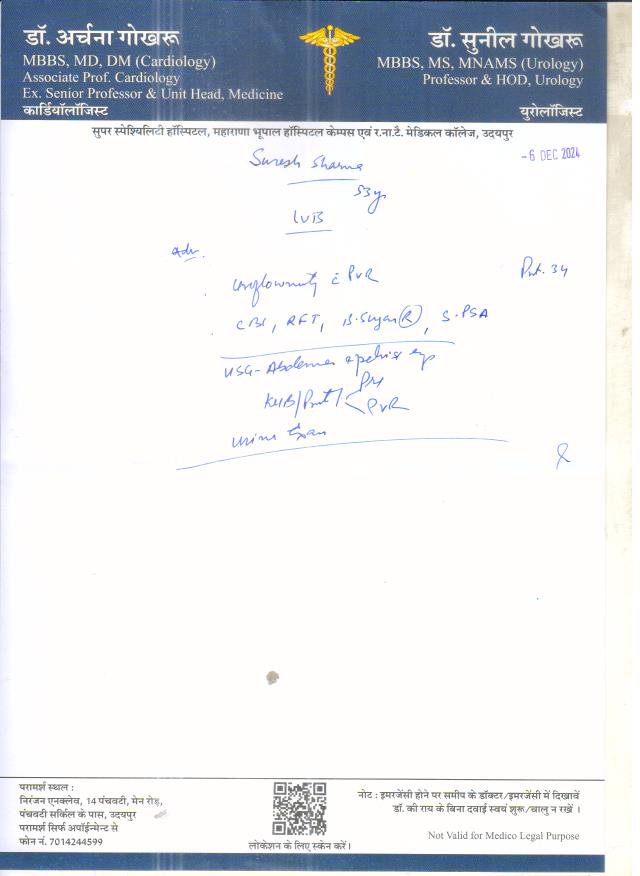 डॉ. अर्चना गोखरू
MBBS, MD, DM (Cardiology)
Associate Prof. Cardiology
Ex. Senior Professor & Unit Head, Medicine
कार्डियॉलॉजिस्ट
डॉ. सुनील गोखरू
MBBS, MS, MNAMS (Urology)
Professor & HOD, Urology
युरोलॉजिस्ट
सुपर स्पेशियलिटी हॉस्पिटल, महाराणा भूपाल हॉस्पिटल केम्पस एवं र.ना.टै. मेडिकल कॉलेज, उदयपुर
- 6 DEC 2024
Suresh Sharma
53y
Adv.
Uroflowmetry c̄ PVR
CBC, RFT, B.Sugar (R), S.PSA
USG-Abdomen
KUB/Prost/
PVR
Urine Exam
परामर्श स्थल :
निरंजन एनक्लेव, 14 पंचवटी, मेन रोड़,
पंचवटी सर्किल के पास, उदयपुर
परामर्श सिर्फ अपॉईन्मेन्ट से
फोन नं. 7014244599
लोकेशन के लिए स्केन करें।
नोट : इमरजेंसी होने पर समीप के डॉक्टर/इमरजेंसी में दिखावें
डॉ. की राय के बिना दवाई स्वयं शुरू/चालु न रखें ।
Not Valid for Medico Legal Purpose